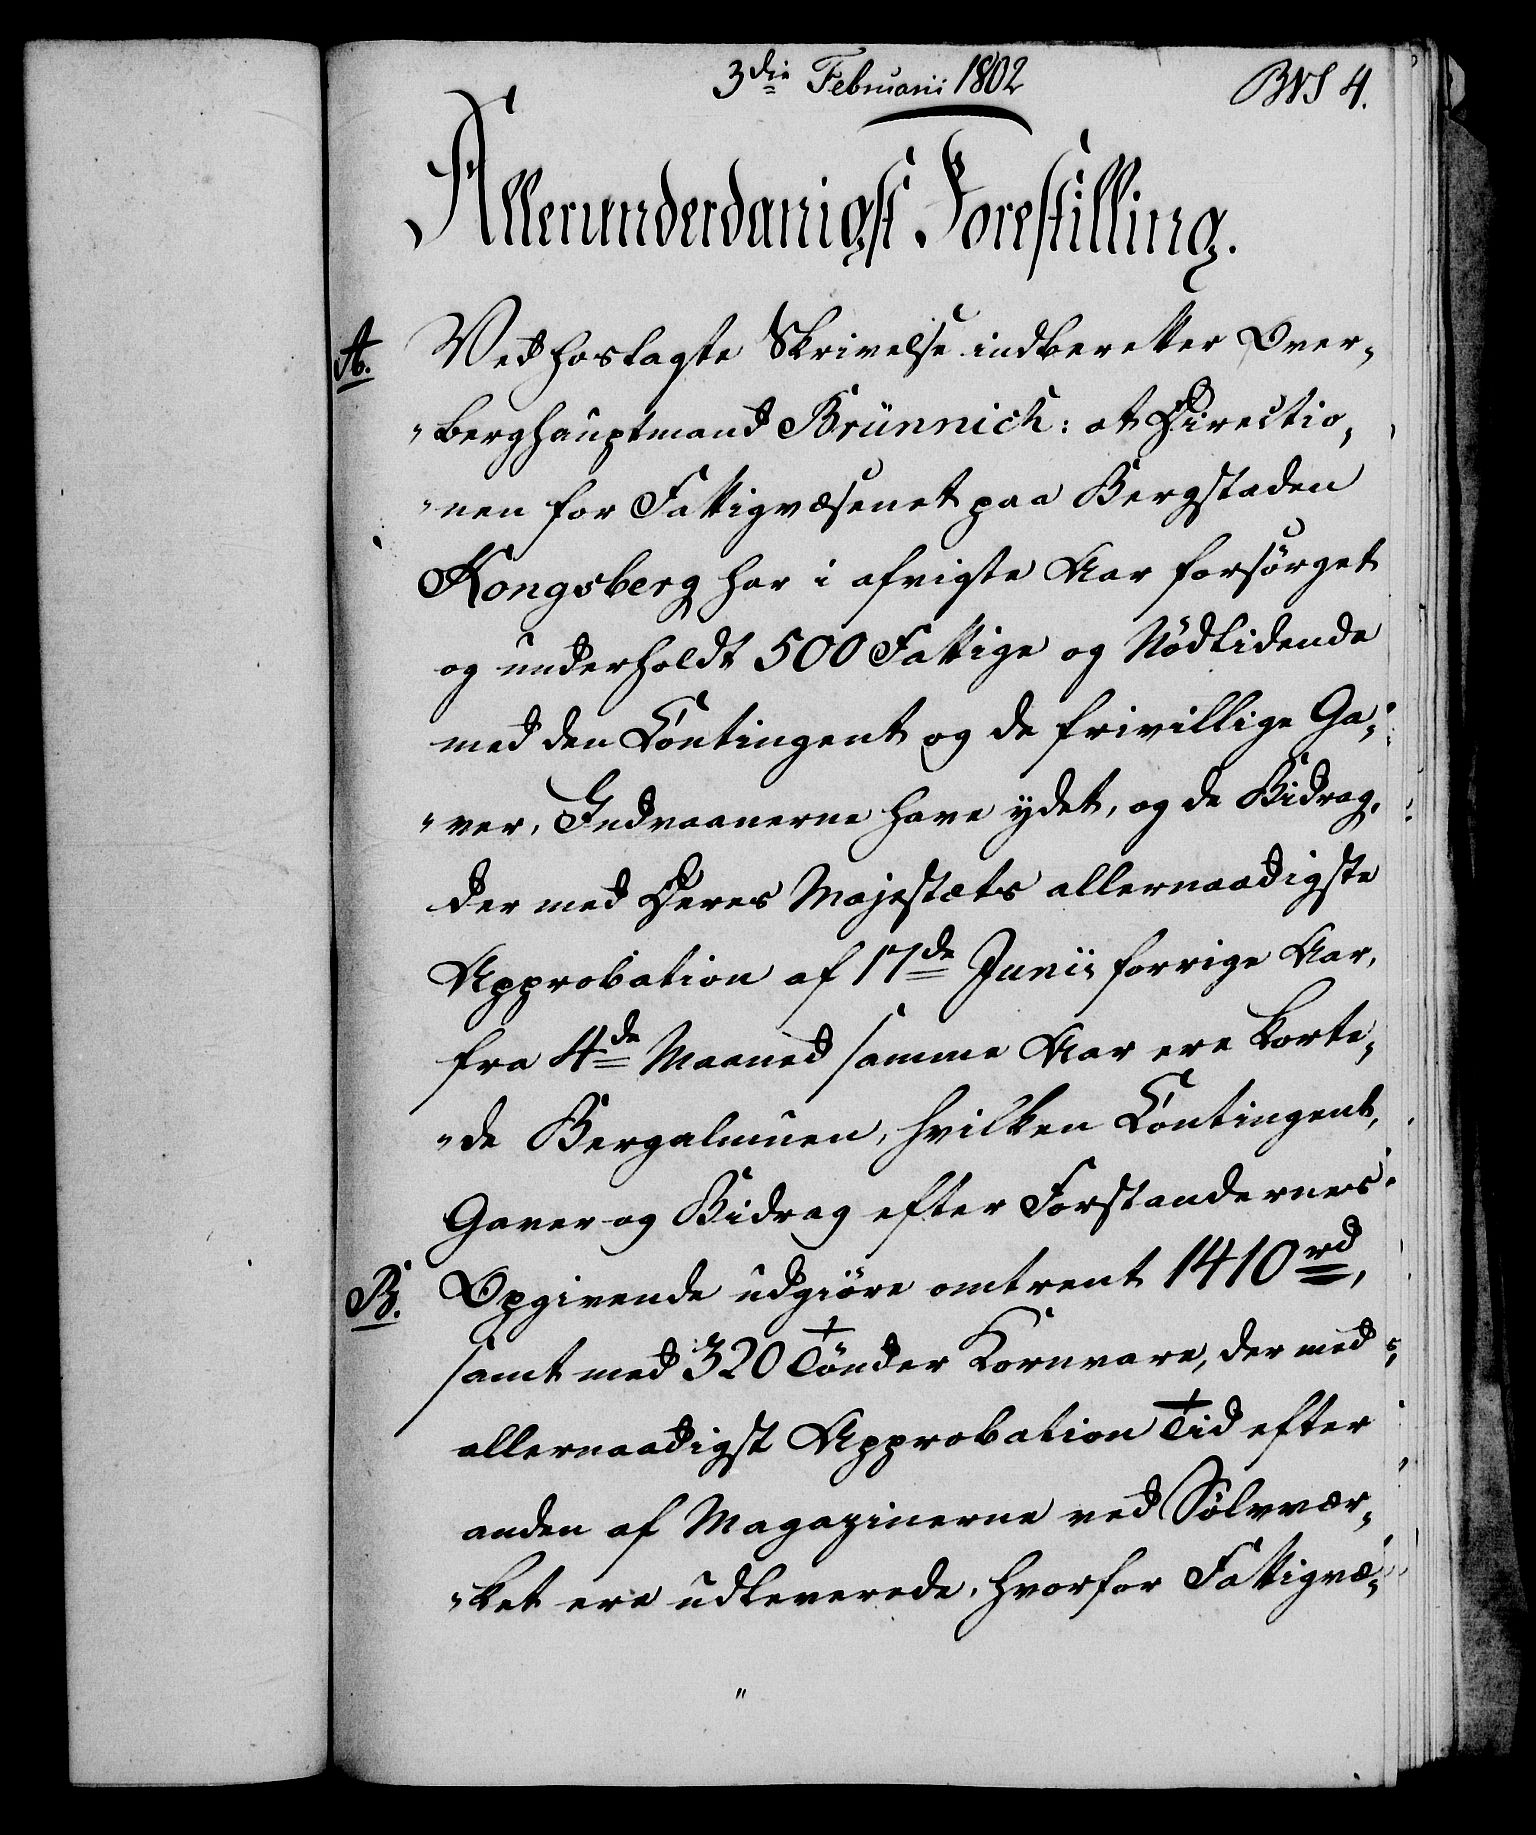 3die Februarii 1802
BVS 4.
Allerunderdanigst Forestilling.
A. Ved hoslagte Skrivelse indberetter Over-
"berghauptmand Brünnich: at Directio-
"nen for Fattigvæsenet paa Bergstaden
Kongsberg har i afvigte Aar forsörget
og underholdt 500 Fattige og Nödlidende
med den Contingent og de frivillige Ga-
"ver, Indvaanerne have ydet, og de Bidrag,
der med Deres Majestæts allernaadigste
Approbation af 17de Junii forrige Aar,
fra 4de Maaned samme Aar ere korte-
"de Bergalmuen, hvilken Contingent,
Gaver og Bidrag efter Forstandernes
B. Opgivende udgiöre omtrent 1410 rd,
samt med 320 Tönder Kornvare, der med
allernaadigst Approbation Tid efter
anden af Magazinerne ved Sölvvær-
"ket ere udleverede, hvorfor Fattigvæ-
"